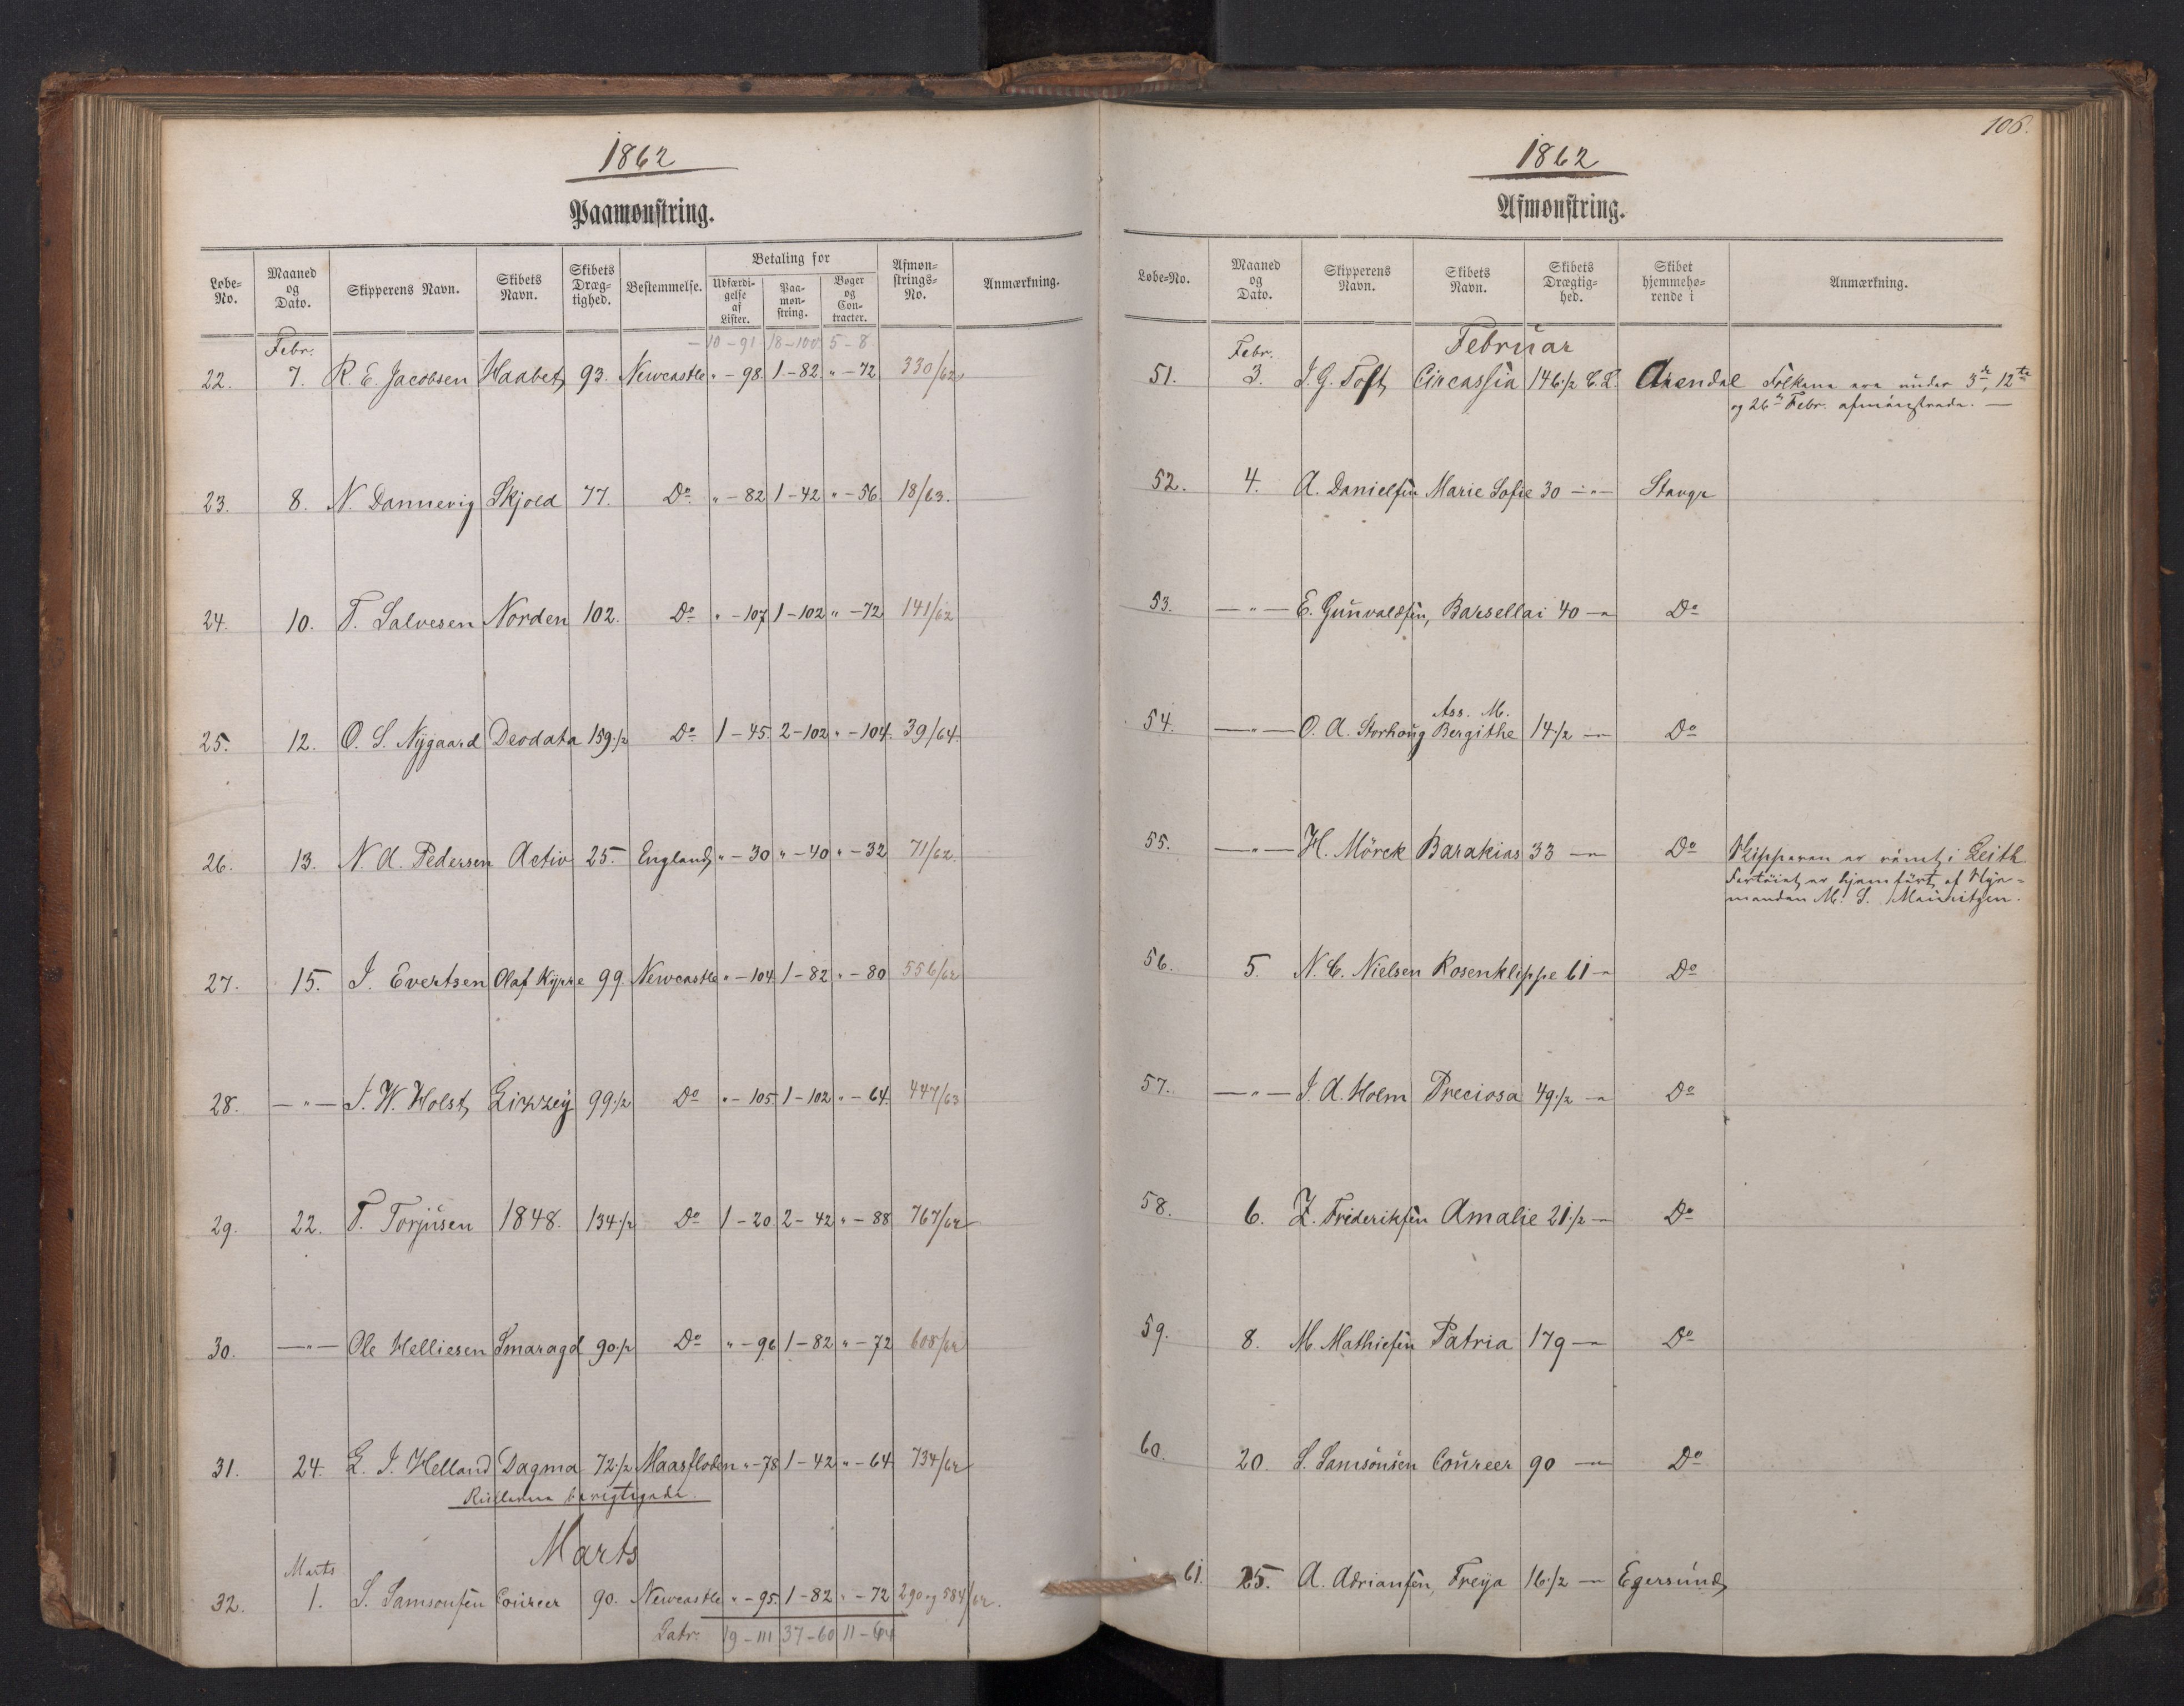 1862
Paamønstring.
Løbe-No. Maaned og Dato. Skipperens Navn. Skibets Navn. Skibets Dræg-tighed. Bestemmelse. Betaling for Udfærdi-gelse af Lister. Paa-møn-string. Bøger og Con-tracter. Afmøn-strings-No. Anmærkning.
— 10 – 91 18 – 100 5 – 8
Febr.
22. 7. R. E. Jacobsen Haabet 93. Newcastle " – 98. 1 – 82. " – 72 330/62.
23. 8. N. Dannevig Skjold 77. Do " – 82 1 – 42 " – 56 18/63.
24. 10. T. Salvesen Norden 102. Do " – 107 1 – 102 " – 72 141/62
25. 12. O. S. Nÿgaard Deodata 159 1/2 Do 1 – 45. 2 – 102 " – 104. 39/64.
26. 13. N. A. Pedersen Activ 25. England " – 30 " – 40 " – 32 71/62.
27. 15. J. Evertsen Olaf Kyrre 99. Newcastle " – 104 1 – 82 " – 80 556/62
28. — " — J. W. Holst Lizzeÿ 99 1/2 Do " – 105. 1 – 102 " – 64. 447/63
29. 22. T. Torjusen 1848. 134 1/2 Do 1 – 20 2 – 42 " – 88 767/62
30. — " — Ole Helliesen Smaragd 90 1/2 Do " – 96 1 – 82 " – 72 608/62
31. 24. L. J. Helland Dagma 72 1/2 Maasfloden " – 78 1 – 42 " – 64 734/62
Rullerne berigtigede.
Marts
Marts
32. 1. S. Samsonsen Coureer 90. Newcastle " – 95. 1 – 82 " – 72 290 og 584/62.
Latr. 19 – 111 37 – 60 11 – 64
106.
1862
Afmønstring.
Løbe-No. Maaned og Dato. Skipperens Navn. Skibets Navn. Skibets Drægtig-hed. Skibet hjemmehø-rende i Anmærkning.
Februar
Febr.
51. 3. J. G. Toft Circassia 146 1/2 C. L. Arendal Folkene ere under 3de, 12te
og 26de Febr. afmønstrede. —
52. 4. A. Danielsen Marie Sofie 30 — " — Stavgr
53. — " — E. Gunvaldsen, Barsellai 40 — " Do
Ass. M.
54. — " — O. A. Storhoug Bergithe 14 1/2 — " Do
55. — " — H. Mörck Barakias 33 — " Do Skipperen er römt i Leith
Fartöiet er hjemfört af Styr-
manden M. S. Mauritzen.
56. 5. N. C. Nielsen Rosenklippe 61 — " Do
57. — " — J. A. Holm Preciosa 49 1/2 — " Do
58. 6. Z. Frideriksen Amalie 21 1/2 — " Do
59. 8. M. Mathiesen Patria 179 — " Do
60. 20. S. Samsonsen Coureer 90 — " Do
61. 25. A. Adriansen, Freÿa 16 1/2 — " Egersund